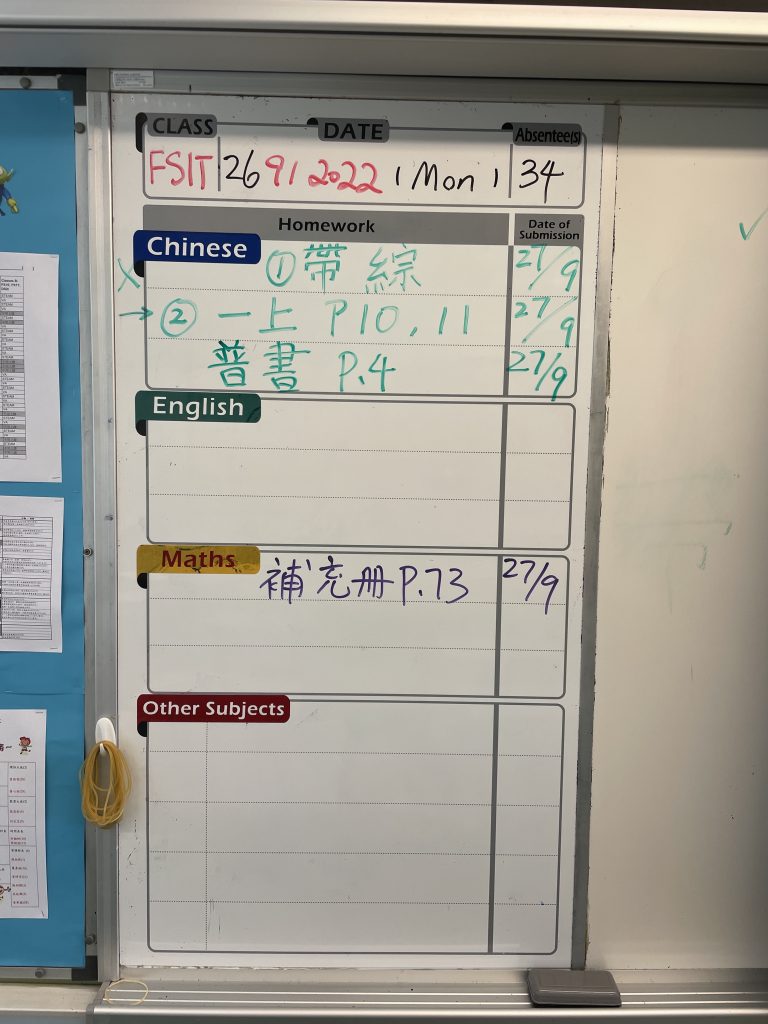 CLASS DATE Absentee(s)
FSIT 26 9 / 2022 ( Mon ) 34
Homework Date of Submission
Chinese ① 帶 綜 27/9
X
→ ② 一上 P 10 , 11 27/9
普書 P.4 27/9
English
Maths 補充册 P.73 27/9
Other Subjects